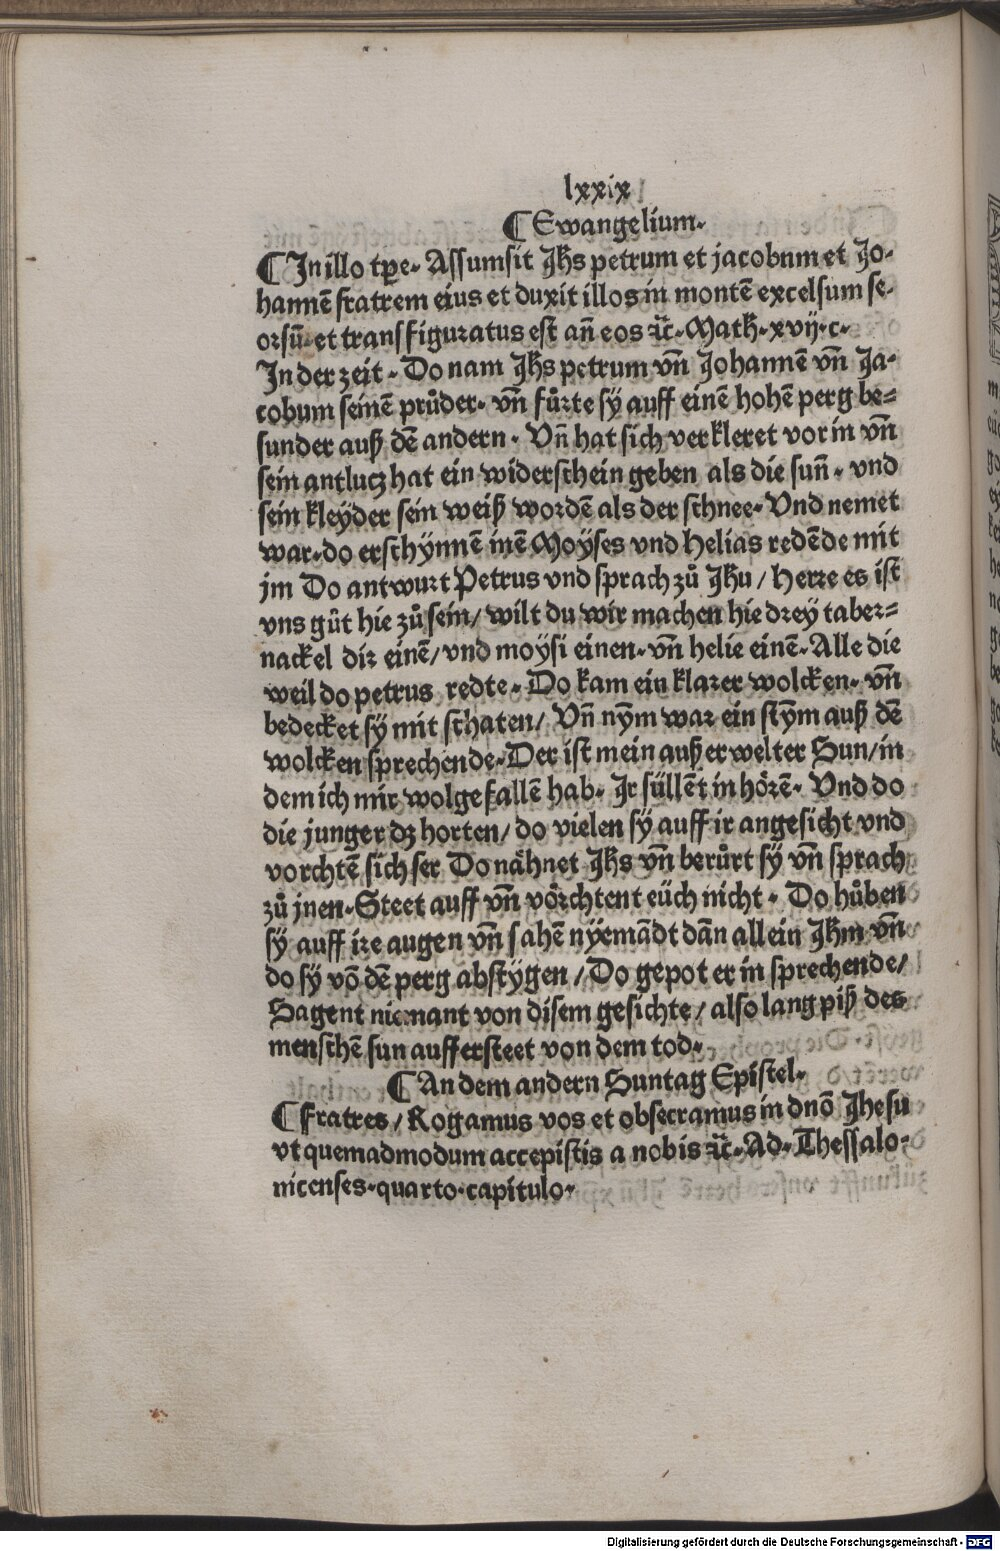 lxxix
¶ Ewangelium.
¶ In illo tꝑe. Assumsit Jhs petrum et jacobum et Jo-
hannē fratrem eius et duxit illos in montē excelsum se-
orsū. et transfiguratus est an̄ eos ꝛc̄. Math. xvij. c.
In der zeit. Do nam Jhs petrum vn̄ Johannē vn̄ Ja-
cobum seinē průder. vn̄ fůrte sÿ auff einē hohē perg be-
sunder auß dē andern. Vn̄ hat sich verkleret vor in vn̄
sein antlucz hat ein widerschein geben als die sun̄. vnd
sein kleÿder sein weiß wordē als der schnee. Vnd nemet
war. do erschÿnnē inē Moÿses vnd Helias redēde mit
jm Do antwurt Petrus vnd sprach zů Jhu / Herre es ist
vns gůt hie zů sein / wilt du wir machen hie drey taber-
nackel dir einē / vnd moÿsi einen. vn̄ helie einē. Alle die
weil do petrus redte. Do kam ein klarer wolcken. vn̄
bedecket sÿ mit schaten / Vn̄ nȳm war ein stȳm auß dē
wolcken sprechende. Der ist mein außerwelter Sun / in
dem ich mir wolgefallē hab. Jr süllēt in hörē. Vnd do
die junger dz horten / do vielen sÿ auff ir angesicht vnd
vorchtē sich ser Do nåhnet Jhs vn̄ berůrt sÿ vn̄ sprach
zů jnen. Steet auff vn̄ vörchtent eüch nicht. Do hůben
sÿ auff ire augen vn̄ sahē nÿemādt dān allein Jhm vn̄
do sÿ vō dē perg abstÿgen / Do gepot er in sprechende /
Sagent niemant von disem gesichte / also lang piß des
menschē sun auffersteet von dem tod.
¶ An dem andern Suntag Epistel.
¶ Fratres / Rogamus vos et obsecramus in dnō Jhesu
vt quemadmodum accepistis a nobis ꝛc̄. Ad. Thessalo-
nicenses. quarto. capitulo.
Digitalisierung gefördert durch die Deutsche Forschungsgemeinschaft - DFG